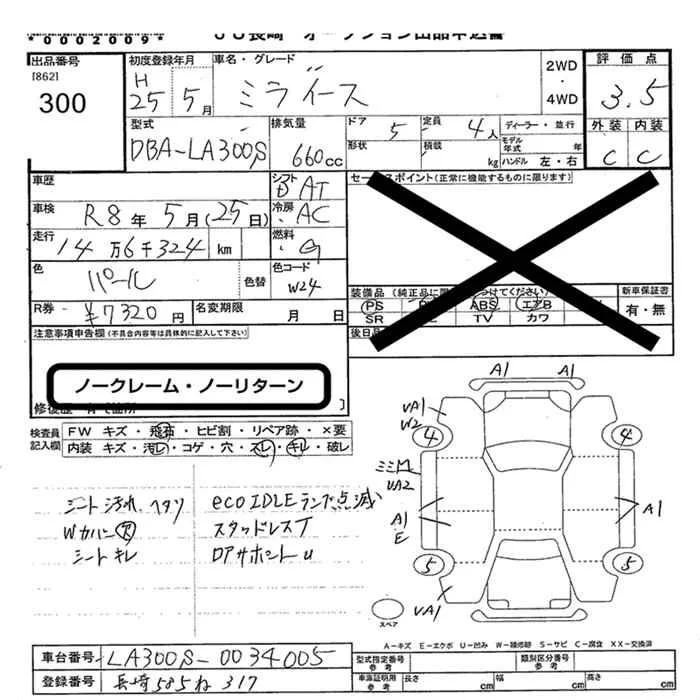 *0002009*
JU長崎 オークション出品申込書
出品番号 初度登録年月 車名・グレード 2WD 評価点
[862] H ・
300 25 5月 ミライース 4WD 3.5
型式 排気量 ドア 5 定員 4人 ディーラー・並行 外装 内装
DBA-LA300S 660cc 形状 積載 kg モデル年式 年 C C
ハンドル 左・右
車歴 シフト AT セールスポイント(正常に機能するものに限ります)
車検 R8年5月(25日) 冷房 AC
走行 14万6千324 km 燃料 G
色 パール 色替 色コード W24
R券 ¥7320円 名変期限 月 日
装備品 (純正品に けてください) 新車保証書
PS ABS エアB 有・無
SR TV カワ
注意事項申告欄(不具合内容等は具体的に記入して下さい) 後日
ノークレーム・ノーリターン
修復歴
検査員記入欄 FW キズ・飛石・ヒビ割・リペア跡・×要
内装 キズ・汚レ・コゲ・穴・スレ・キレ・破レ
シート汚れ、ヘタリ eco IDLEランプ点滅
Wカバー スタッドレスT
シートキレ ロアサポートu
A1 A1
VA1
W2
4 4
ミミM
VA2
A1 A1
E
5 5
VA1
スペア
A-キズ E-エクボ U-凹み W-補修跡 S-サビ C-腐食 XX-交換済
車台番号 LA300S-0034005 型式指定番号 参考 類別区分番号 参考
登録番号 長崎585ね317 車庫証明用 参考 長さ cm 幅 cm 高さ cm